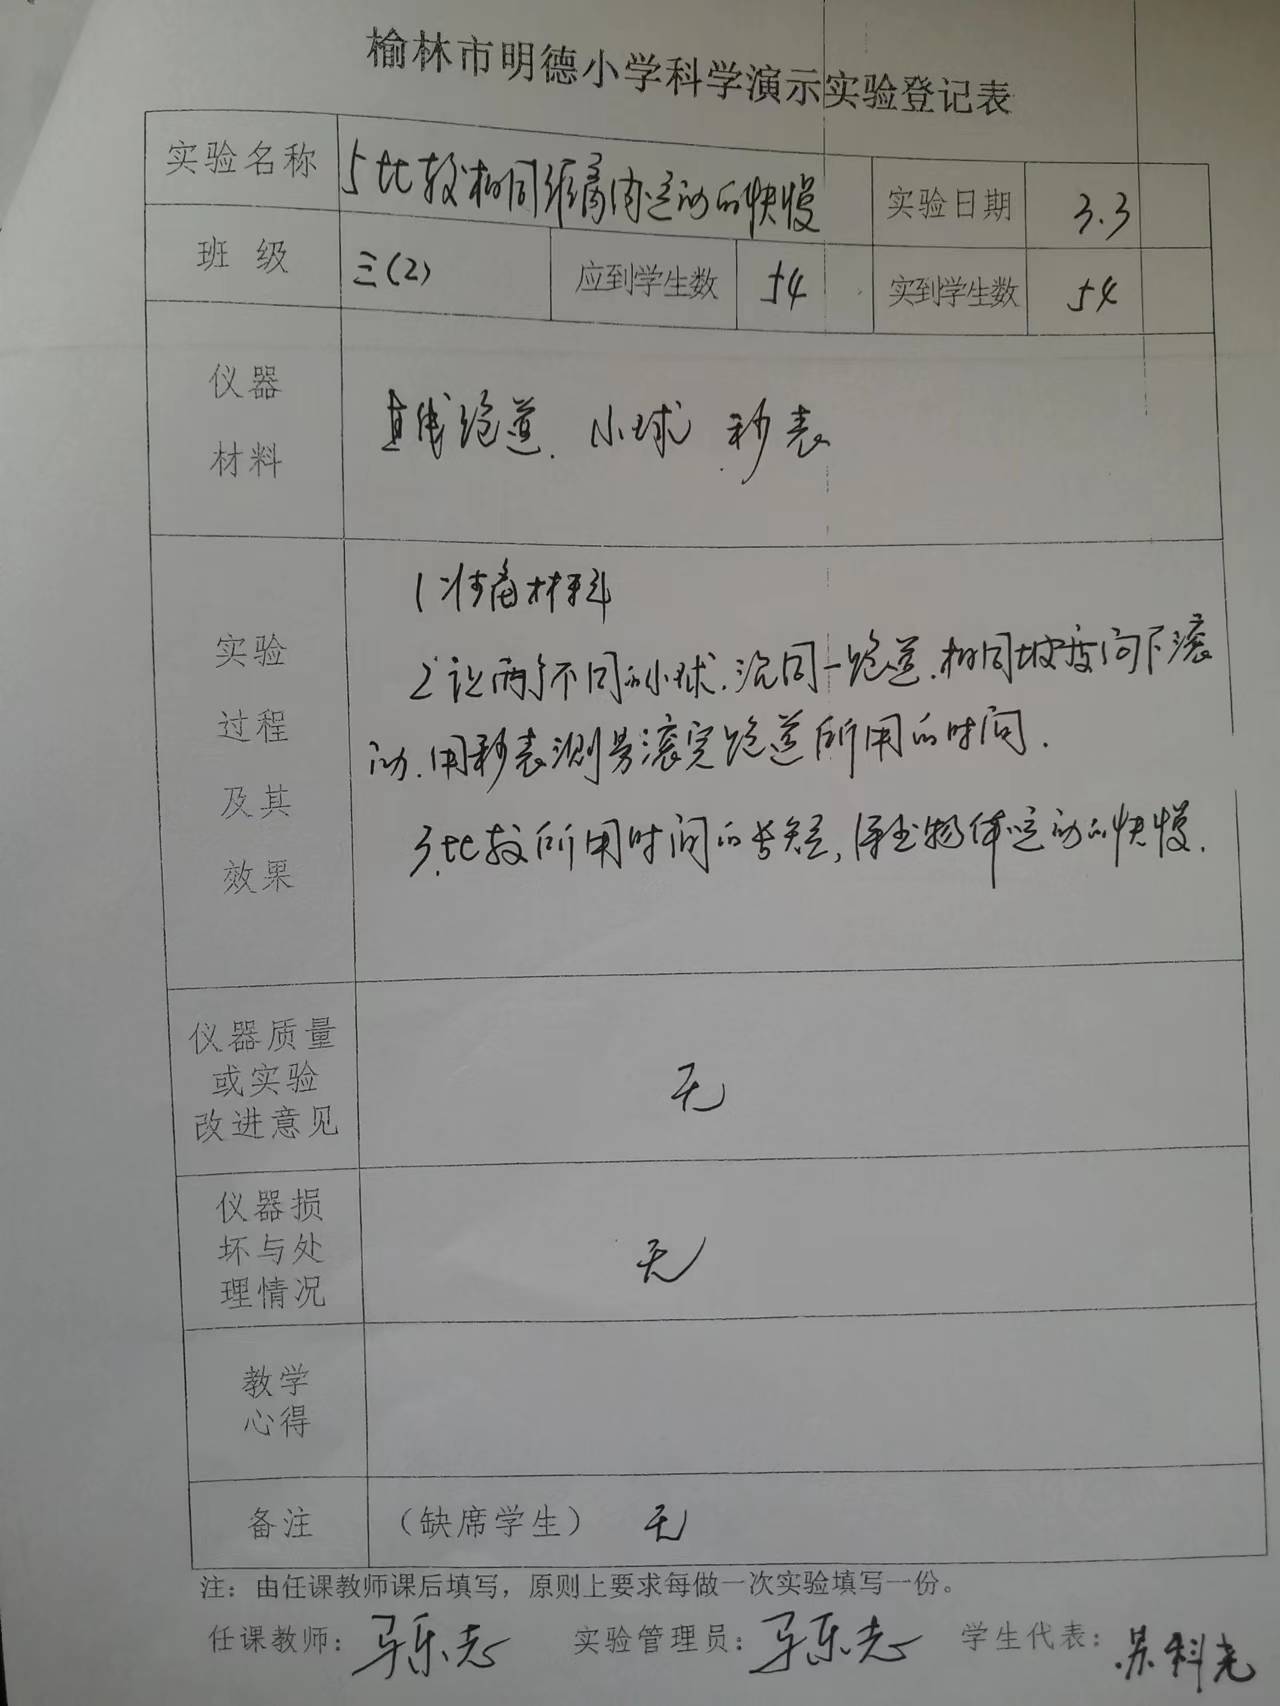 榆林市明德小学科学演示实验登记表
实验名称 5 比较相同距离内运动的快慢 实验日期 3.3
班 级 三(2) 应到学生数 54 实到学生数 54
仪器
材料
直线跑道. 小球 秒表
实验
过程
及其
效果
1 准备材料
2 让两个不同的小球.沿同一跑道.相同坡度向下滚
动.用秒表测量滚完跑道所用的时间.
3.比较所用时间的长短,得出物体运动的快慢.
仪器质量
或实验
改进意见
无
仪器损
坏与处
理情况
无
教学
心得
备注 (缺席学生) 无
注:由任课教师课后填写,原则上要求每做一次实验填写一份。
任课教师: 马乐志 实验管理员: 马乐志 学生代表: 苏科